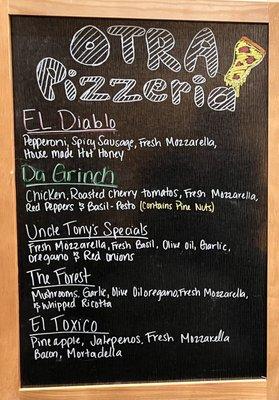 OTRA
Pizzeria
EL Diablo
Pepperoni, Spicy Sausage, Fresh Mozzarella,
House made Hot Honey
Da Grinch
Chicken, Roasted Cherry tomatoes, Fresh Mozzarella,
Red Peppers & Basil-Pesto (Contains Pine Nuts)
Uncle Tony's Specials
Fresh Mozzarella, Fresh Basil, Olive oil, Garlic,
oregano & Red onions
The Forest
Mushrooms, Garlic, Olive Oil oregano, Fresh Mozzarella,
& Whipped Ricotta
El Toxico
Pineapple, Jalepenos, Fresh Mozzarella
Bacon, Mortadella